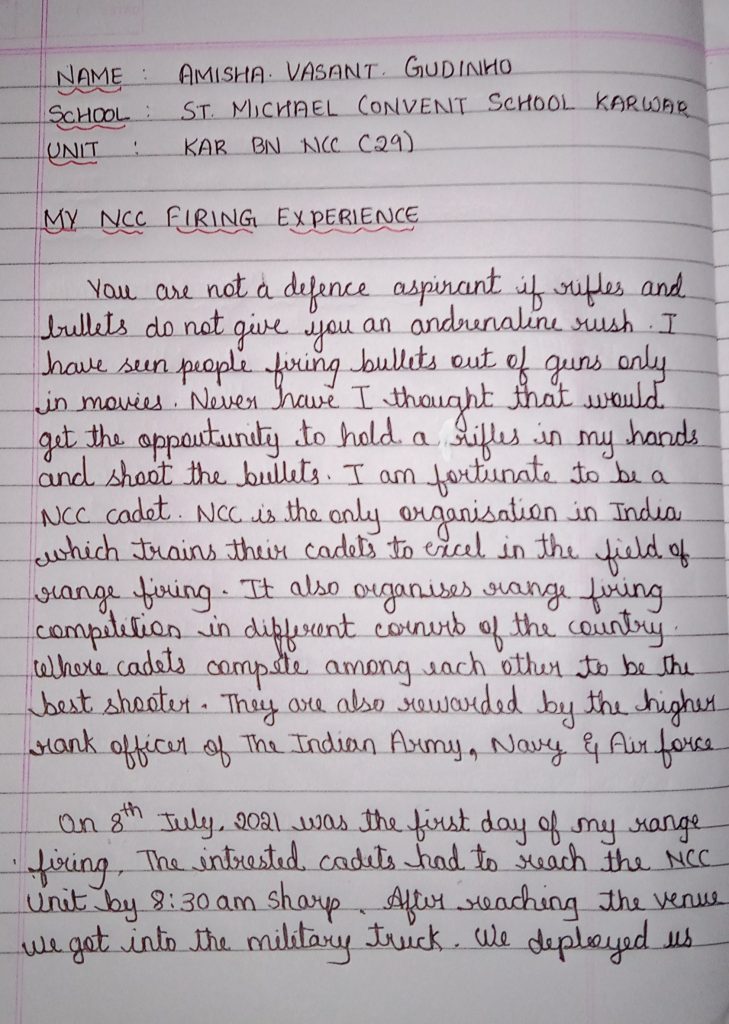 NAME : AMISHA. VASANT. GUDINHO
SCHOOL : ST. MICHAEL CONVENT SCHOOL KARWAR
UNIT : KAR BN NCC (29)
MY NCC FIRING EXPERIENCE
You are not a defence aspirant if rifles and
bullets do not give you an andrenaline rush. I
have seen people firing bullets out of guns only
in movies. Never have I thought that would
get the oppoutunity to hold a rifles in my hands
and shoot the bullets. I am fortunate to be a
NCC cadet. NCC is the only organisation in India
which trains their cadets to excel in the field of
range firing. It also organises range firing
competition in different cornerb of the country.
Where cadets compete among each other to be the
best shooter. They are also rewarded by the higher
rank officer of The Indian Army, Navy & Air force
On 8th July, 2021 was the first day of my range
firing, The intrested cadets had to reach the NCC
Unit by 8:30 am sharp. After reaching the venue
we got into the military truck. We deployed us